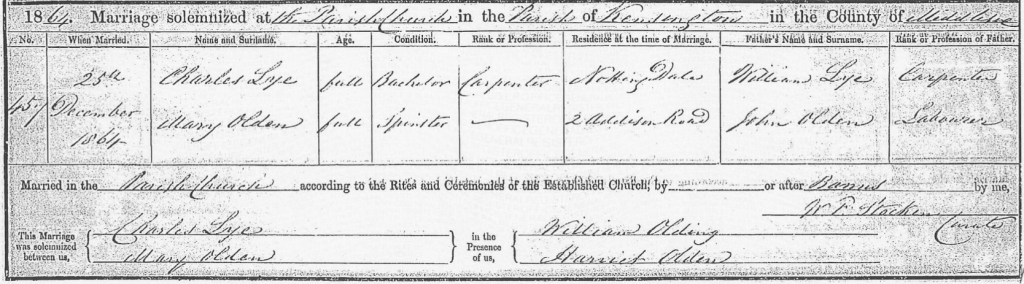 1864. Marriage solemnized at the Parish Church in the Parish of Kensington in the County of Middlesex
No. When Married. Name and Surname. Age. Condition. Rank or Profession. Residence at the time of Marriage. Father's Name and Surname. Rank or Profession of Father.
25th Charles Lye full Bachelor Carpenter Notting Dale William Lye Carpenter
457 December
Mary Olden full Spinster — 2 Addison Road John Olden Labourer
1864
Married in the Parish Church according to the Rites and Ceremonies of the Established Church, by or after Banns by me,
W F Stocken
Curate
Charles Lye William Olding
This Marriage was solemnized between us, in the Presence of us,
Mary Olden Harriet Olden